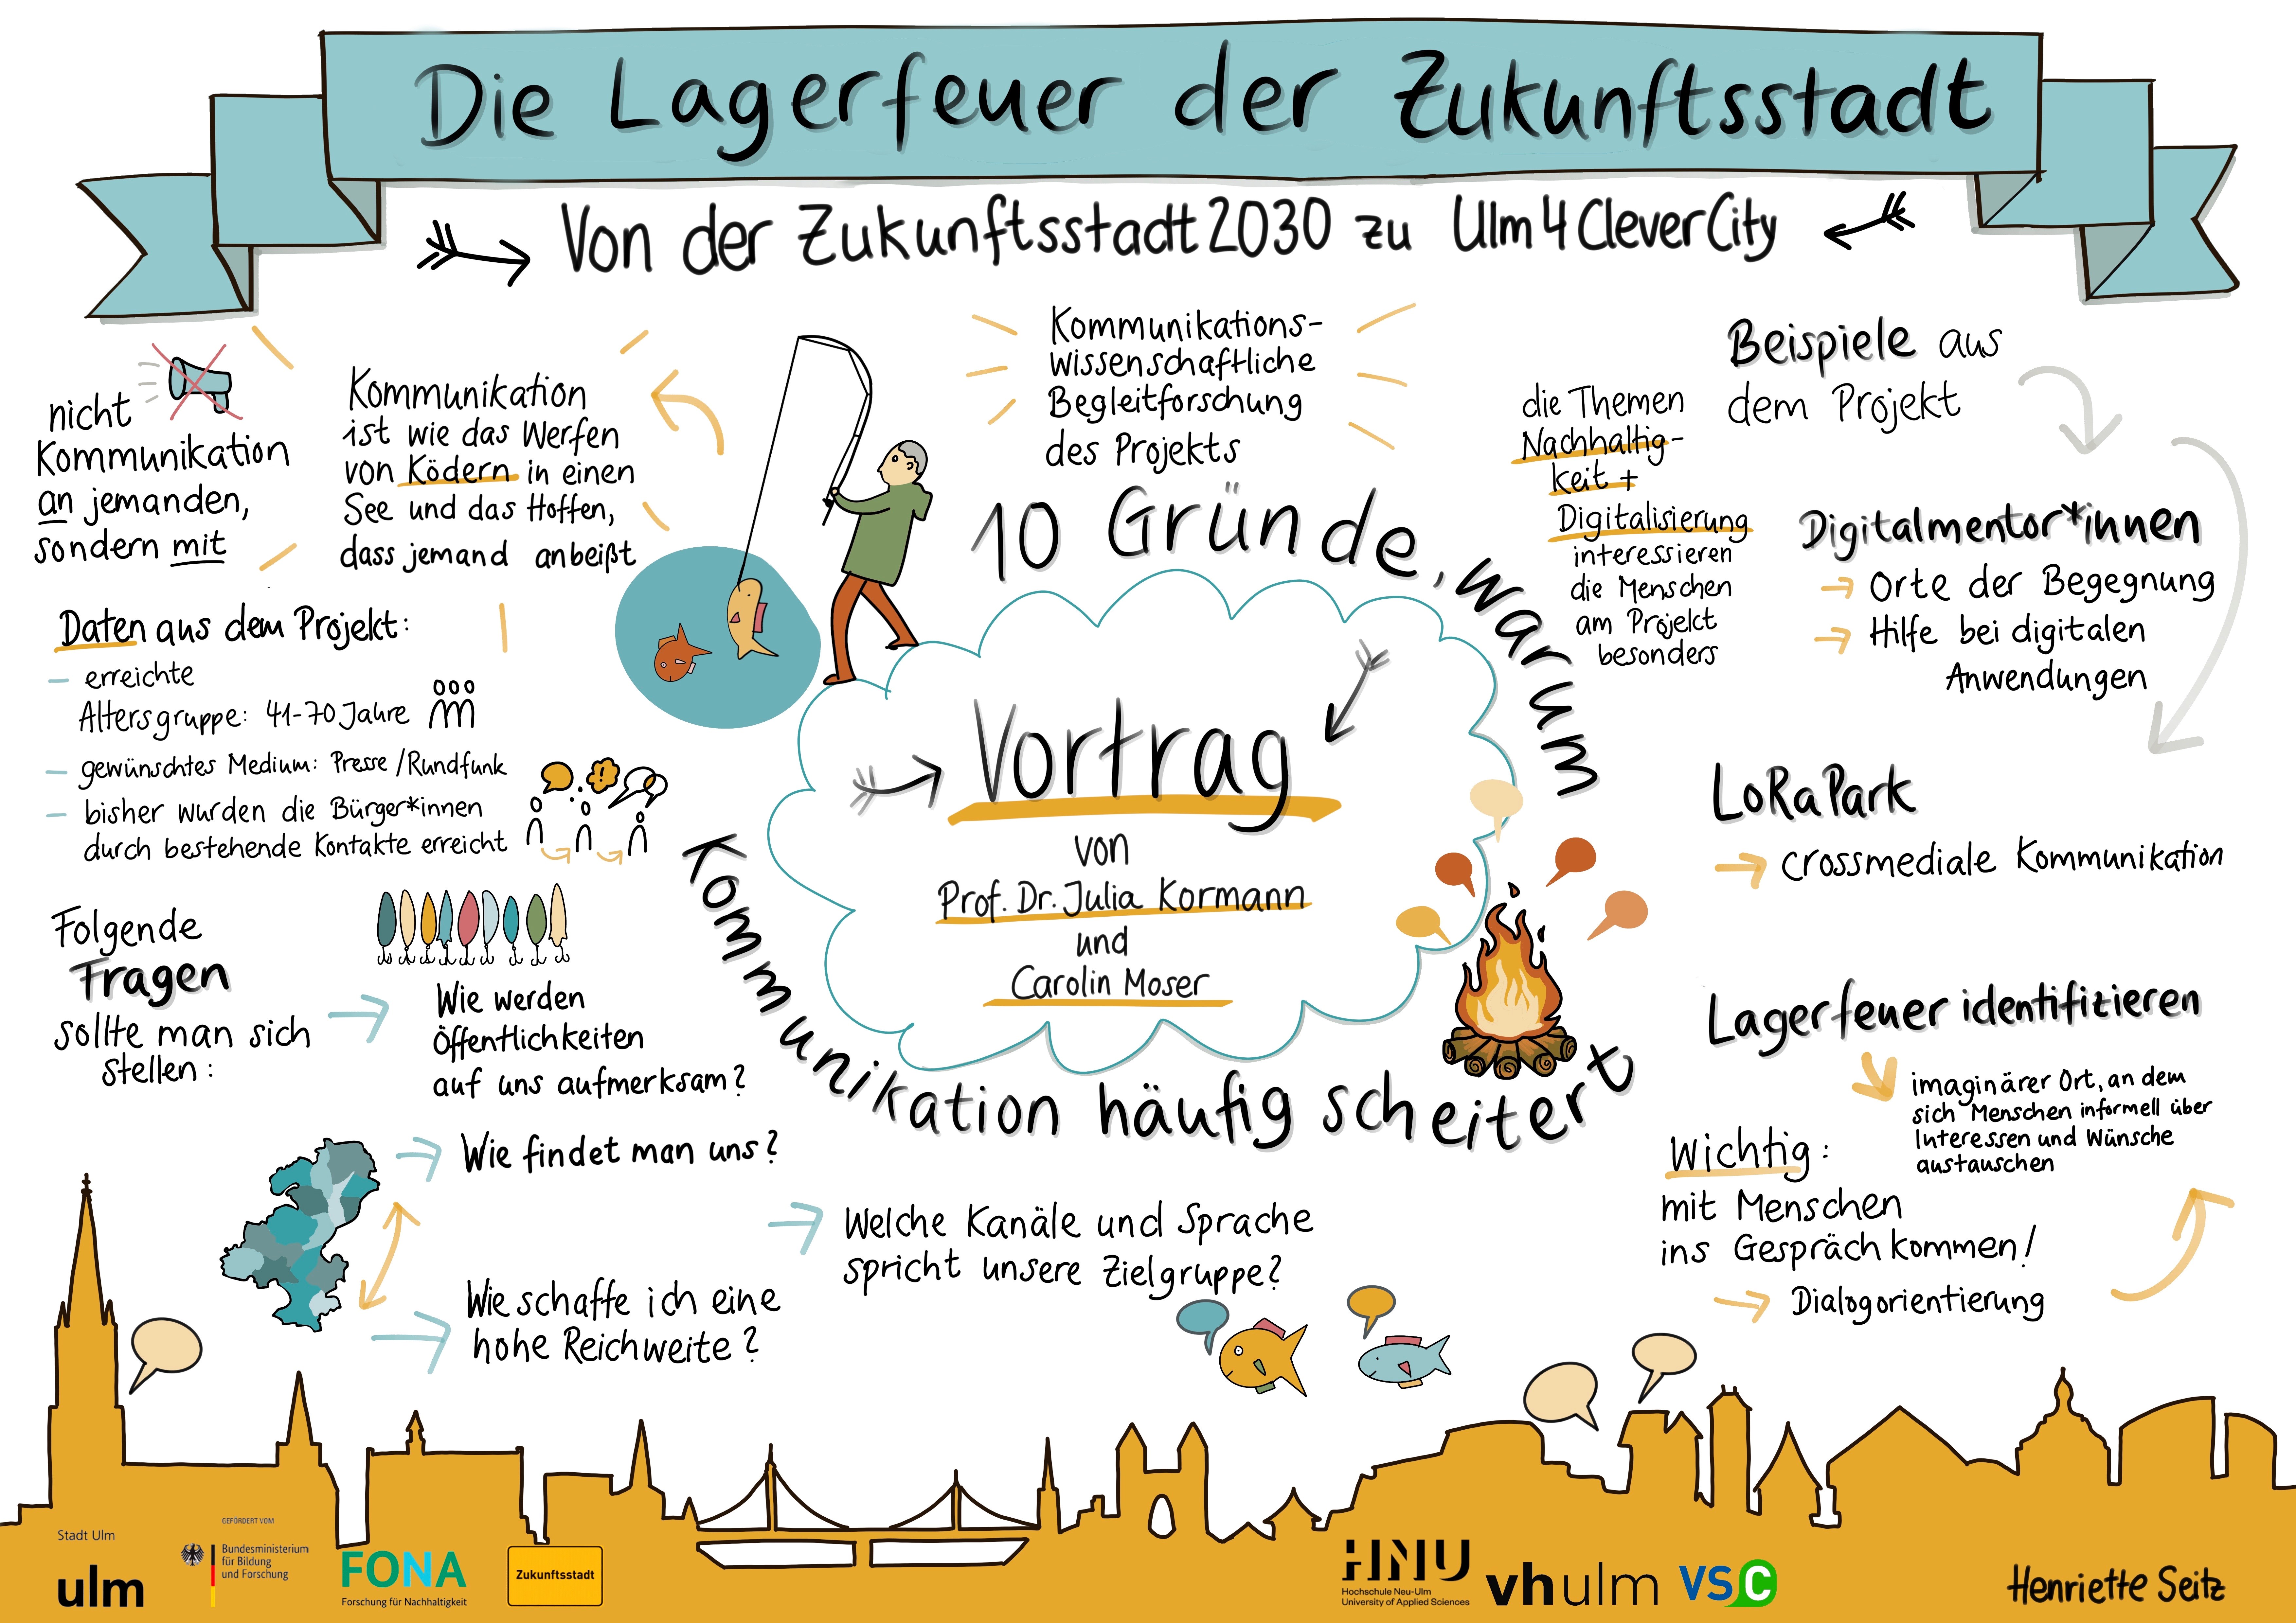 Die Lagerfeuer der Zukunftsstadt
Von der Zukunftsstadt 2030 zu Ulm4CleverCity
nicht
Kommunikation
an jemanden,
sondern mit
Kommunikation
ist wie das Werfen
von Ködern in einen
See und das Hoffen,
dass jemand anbeißt
Kommunikations-
wissenschaftliche
Begleitforschung
des Projekts
die Themen
Nachhaltig-
keit +
Digitalisierung
interessieren
die Menschen
am Projekt
besonders
Beispiele aus
dem Projekt
Digitalmentor*innen
Orte der Begegnung
Hilfe bei digitalen
Anwendungen
LoRaPark
crossmediale Kommunikation
10 Gründe, warum
Kommunikation häufig scheitert
Vortrag
von
Prof. Dr. Julia Kormann
und
Carolin Moser
Daten aus dem Projekt:
– erreichte
Altersgruppe: 41-70 Jahre
– gewünschtes Medium: Presse/Rundfunk
– bisher wurden die Bürger*innen
durch bestehende Kontakte erreicht
Folgende
Fragen
sollte man sich
stellen:
Wie werden
Öffentlichkeiten
auf uns aufmerksam?
Wie findet man uns?
Wie schaffe ich eine
hohe Reichweite?
Welche Kanäle und Sprache
spricht unsere Zielgruppe?
Lagerfeuer identifizieren
imaginärer Ort, an dem
sich Menschen informell über
Interessen und Wünsche
austauschen
Wichtig:
mit Menschen
ins Gespräch kommen!
Dialogorientierung
Stadt Ulm
ulm
GEFÖRDERT VOM
Bundesministerium
für Bildung
und Forschung
FONA
Forschung für Nachhaltigkeit
Zukunftsstadt
HNU
Hochschule Neu-Ulm
University of Applied Sciences
vhulm
VSC
Henriette Seitz